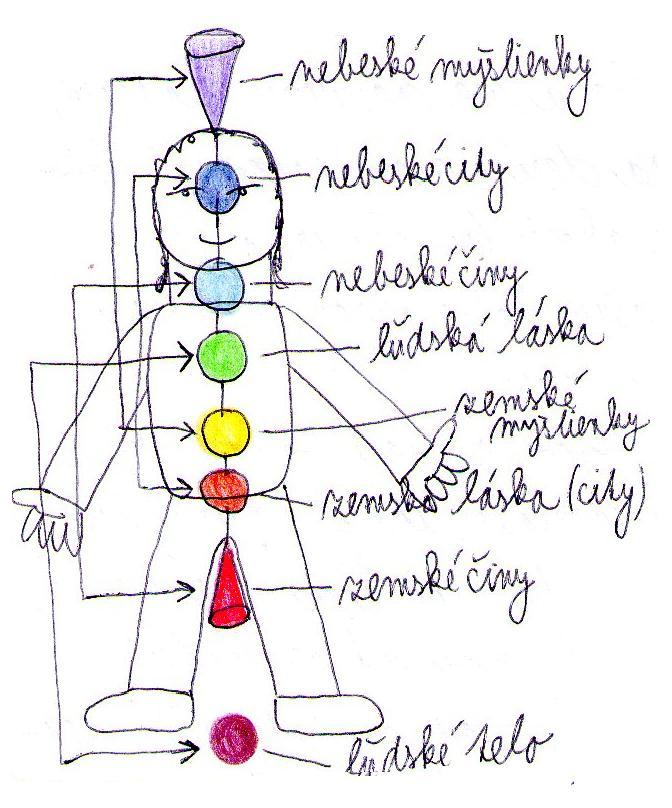 nebeské myšlienky
nebeské city
nebeské činy
ľudská láska
zemské
myšlienky
zemská láska (city)
zemské činy
ľudské telo